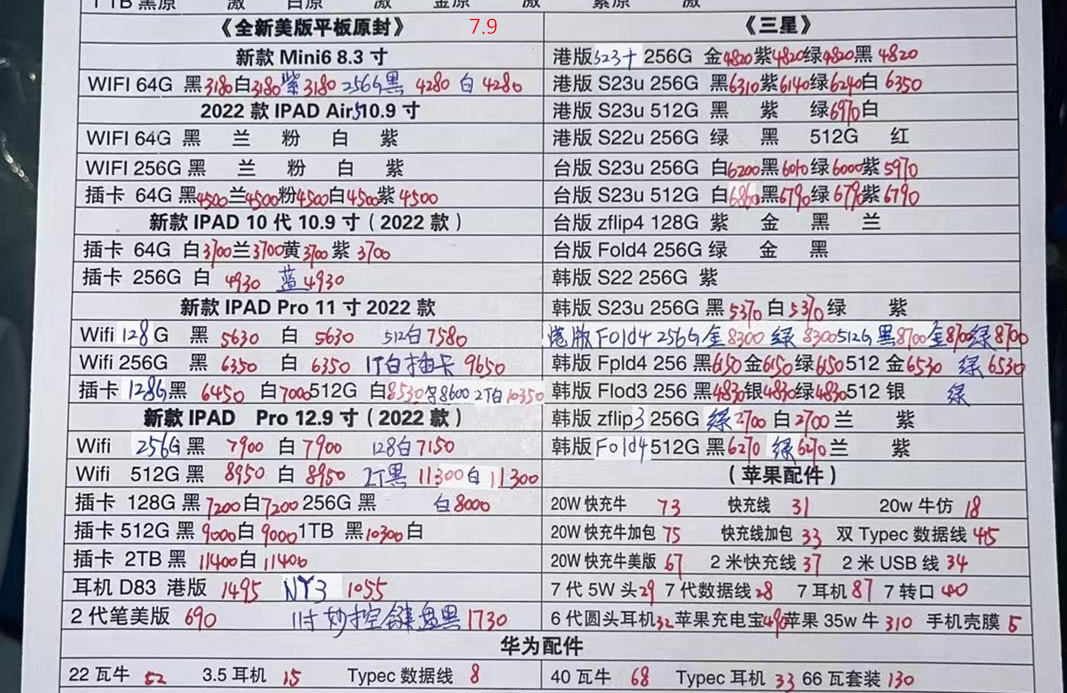 《全新美版平板原封》 7.9
新款 Mini6 8.3 寸
WIFI 64G 黑3180白3180紫3180 256G黑 4280 白 4280
2022 款 IPAD Air5 10.9 寸
WIFI 64G 黑 兰 粉 白 紫
WIFI 256G 黑 兰 粉 白 紫
插卡 64G 黑4500兰4500粉4500白4500紫4500
新款 IPAD 10 代 10.9 寸（2022 款）
插卡 64G 白3700兰3700黄3700紫 3700
插卡 256G 白 4930 蓝4930
新款 IPAD Pro 11 寸 2022 款
Wifi 128G 黑 5630 白 5630 512白7580
Wifi 256G 黑 6350 白 6350 1T白插卡 9650
插卡 128G黑 6450 白7000 512G 白8530 8600 2T白10350
新款 IPAD Pro 12.9 寸（2022 款）
Wifi 256G黑 7900 白 7900 128白7150
Wifi 512G 黑 8950 白 8950 2T黑 11300白11300
插卡 128G 黑7200白7200 256G 黑 白8000
插卡 512G 黑9000白9000 1TB 黑10300白
插卡 2TB 黑 11400白11400
耳机 D83 港版 1495 NY3 1055
2 代笔美版 690 11寸妙控键盘黑1730
《三星》
港版S23+ 256G 金4820紫4820绿4820黑 4820
港版 S23u 256G 黑6310紫6140绿6240白 6350
港版 S23u 512G 黑 紫 绿6970白
港版 S22u 256G 绿 黑 512G 红
台版 S23u 256G 白6200黑6010绿6000紫5970
台版 S23u 512G 白6860黑6790绿6790紫6790
台版 zflip4 128G 紫 金 黑 兰
台版 Fold4 256G 绿 金 黑
韩版 S22 256G 紫
韩版 S23u 256G 黑5370白5370绿 紫
港版Fold4 256G金8300 绿 8300 512G黑8700金8700绿8700
韩版 Fpld4 256 黑6150金6150绿6150 512 金6530 绿6530
韩版 Flod3 256 黑4830银4830绿4830 512 银 绿
韩版 zflip3 256G 绿2700 白2700兰 紫
韩版 Fold4 512G 黑6270 绿6270兰 紫
（苹果配件）
20W 快充牛 73 快充线 31 20w 牛仿 18
20W 快充牛加包 75 快充线加包 33 双 Typec 数据线 45
20W 快充牛美版 67 2 米快充线 37 2 米 USB 线 34
7 代 5W 头29 7 代数据线28 7 耳机87 7 转口 40
6 代圆头耳机32苹果充电宝490苹果 35w 牛 310 手机壳膜 5
华为配件
22 瓦牛 52 3.5 耳机 15 Typec 数据线 8 40 瓦牛 68 Typec 耳机 33 66 瓦套装 130